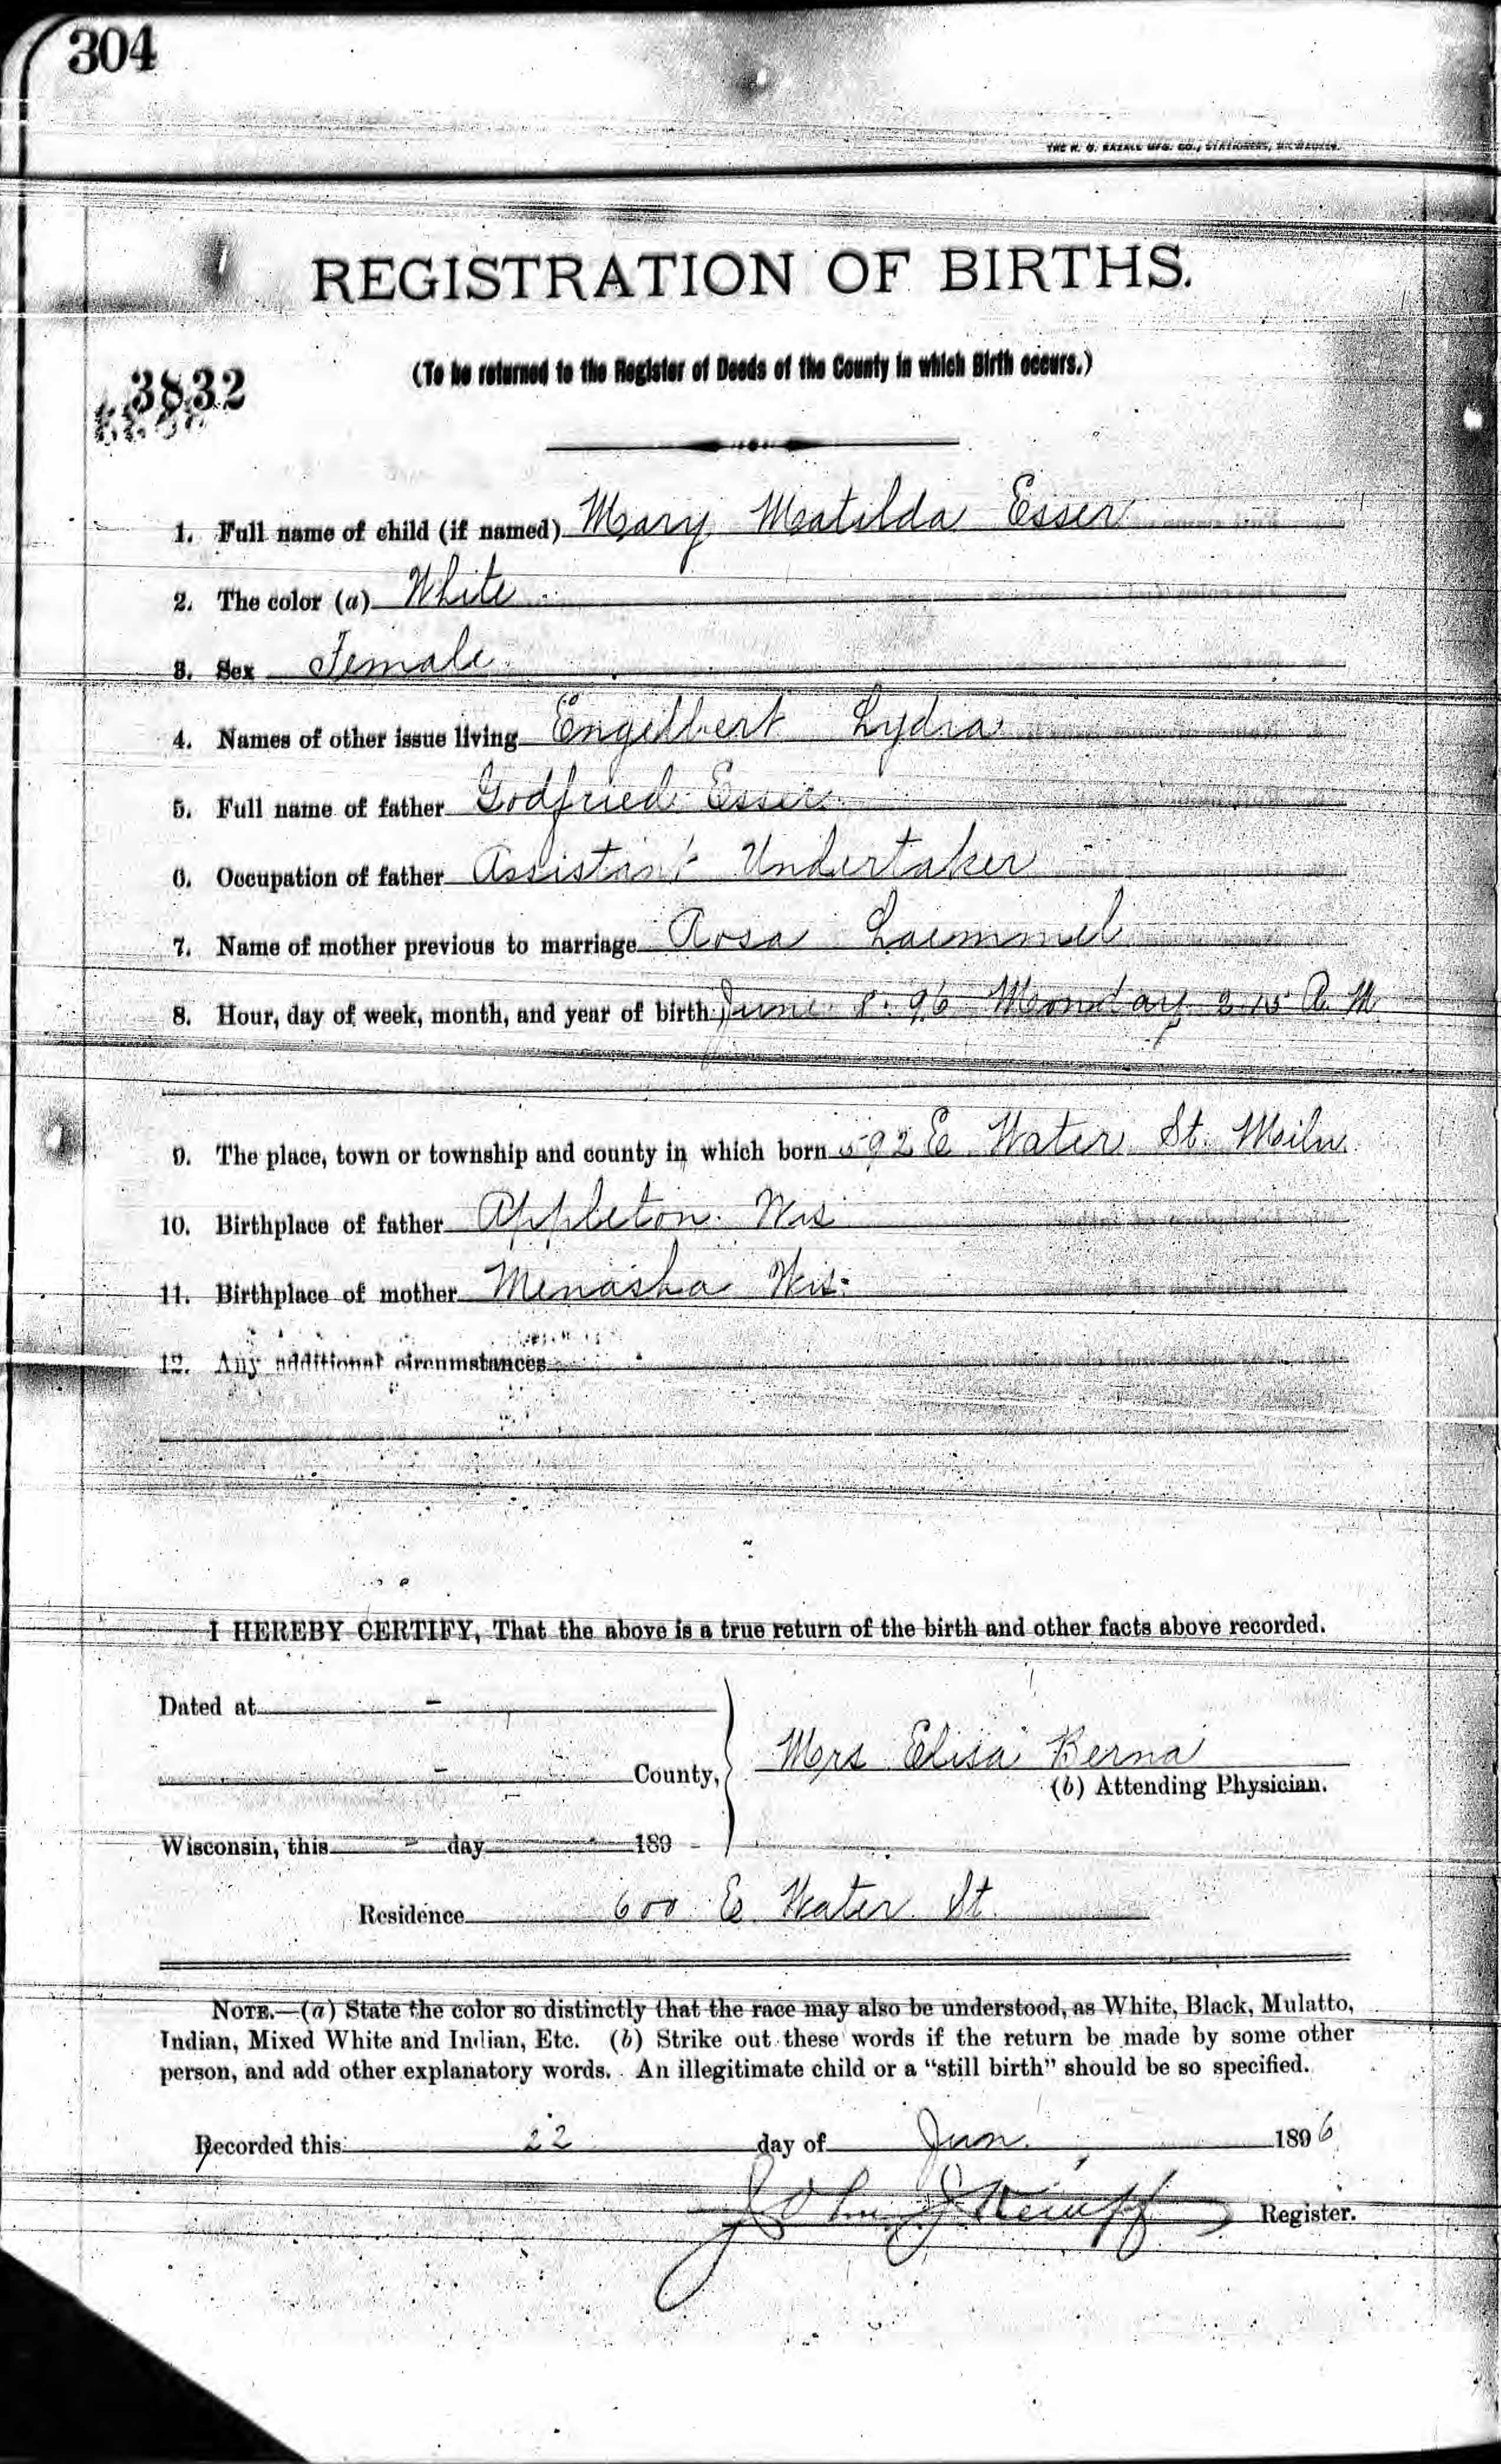 304
THE H. G. RAZALL MFG. CO., STATIONERS, MILWAUKEE.
REGISTRATION OF BIRTHS.
(To be returned to the Register of Deeds of the County in which Birth occurs.)
3832
1. Full name of child (if named) Mary Matilda Esser
2. The color (a) White
3. Sex Female
4. Names of other issue living Engelbert Lydia
5. Full name of father Godfried Esser
6. Occupation of father Assistant Undertaker
7. Name of mother previous to marriage Rosa Laemmel
8. Hour, day of week, month, and year of birth June 8. 96 Monday 3 15 A. M
9. The place, town or township and county in which born 592 E Water St. Milw
10. Birthplace of father Appleton. Wis
11. Birthplace of mother Menasha Wis.
12. Any additional circumstances
I HEREBY CERTIFY, That the above is a true return of the birth and other facts above recorded.
Dated at -
- County,
Mrs Elisa Berna
(b) Attending Physician.
Wisconsin, this - day 189 -
Residence 600 E. Water St.
NOTE.—(a) State the color so distinctly that the race may also be understood, as White, Black, Mulatto,
Indian, Mixed White and Indian, Etc. (b) Strike out these words if the return be made by some other
person, and add other explanatory words. An illegitimate child or a "still birth" should be so specified.
Recorded this 22 day of Jun. 1896
John J Kempf Register.